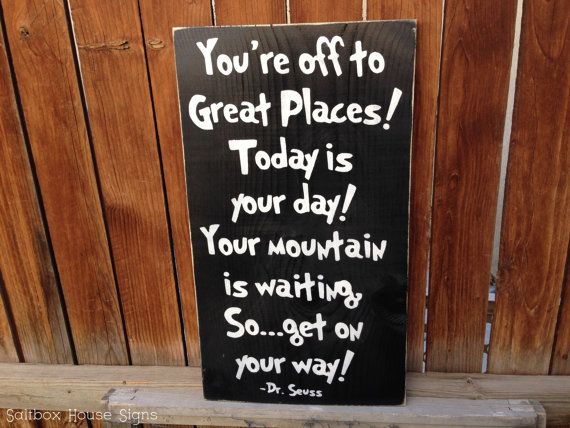 You're off to
Great Places!
Today is
your day!
Your mountain
is waiting,
So...get on
your way!
-Dr. Seuss
Saltbox House Signs